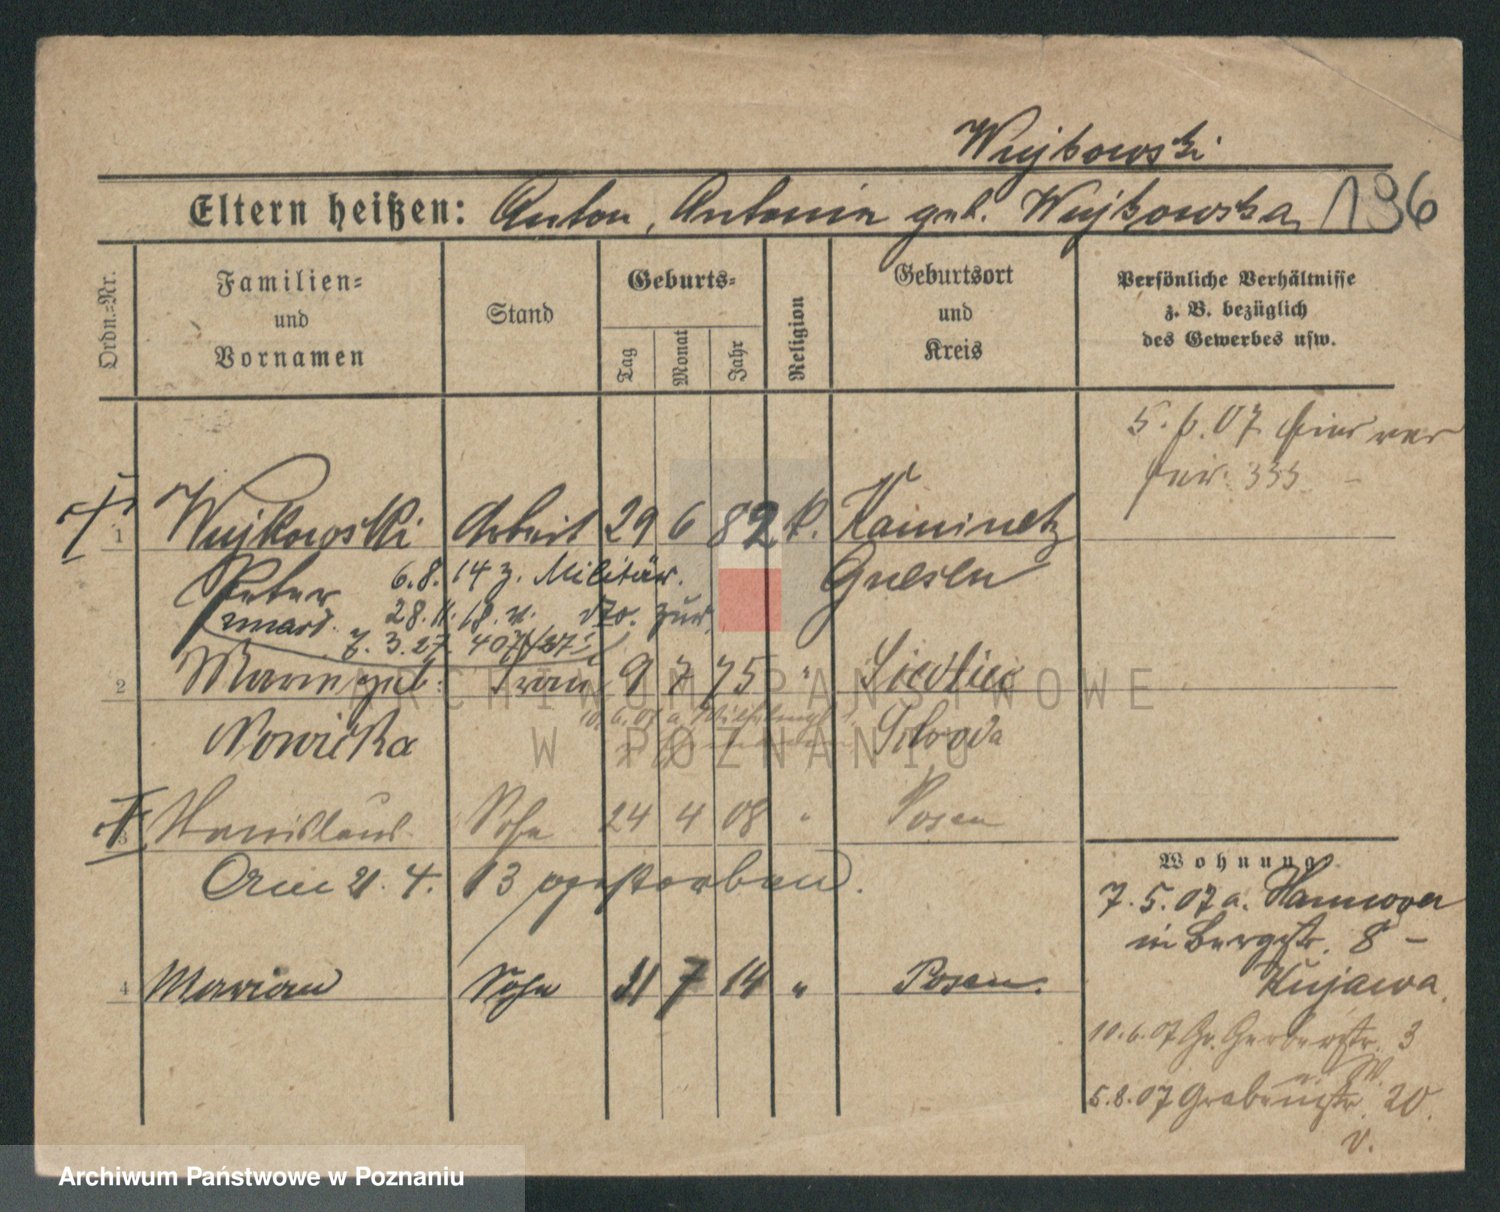 Wujkowski
Eltern heißen: Anton, Antonie geb. Wujkowska 196
Ordn.-Nr.
Familien-
und
Vornamen
Stand
Geburts-
Tag
Monat
Jahr
Religion
Geburtsort
und
Kreis
Persönliche Verhältnisse
z. B. bezüglich
des Gewerbes usw.
5. 6. 07
333
1 Wujkowski Arbeit 29 6 82 k. Kaminetz
Peter 6.8.14 z. Militär. Gnesen
28.11.18. v. dto. zur.
7. 3. 27. 407/27
2 Maria geb. Frau 9 7 75 " Siedliec
10. 6. 07 a.
Nowicka Schroda
3 Stanislaus Sohn 24 4 08 " Posen
Am 21. 4. 13 verstorben.
4 Marian Sohn 21 7 14 " Posen.
Wohnung
7. 5. 07 a. Hannover
in Bergstr. 8 –
Kujawa.
10. 6. 07 Gr. Gerberstr. 3
5. 8. 07 Grabenstr. 20.
v.
ARCHIWUM PAŃSTWOWE
W POZNANIU
Archiwum Państwowe w Poznaniu